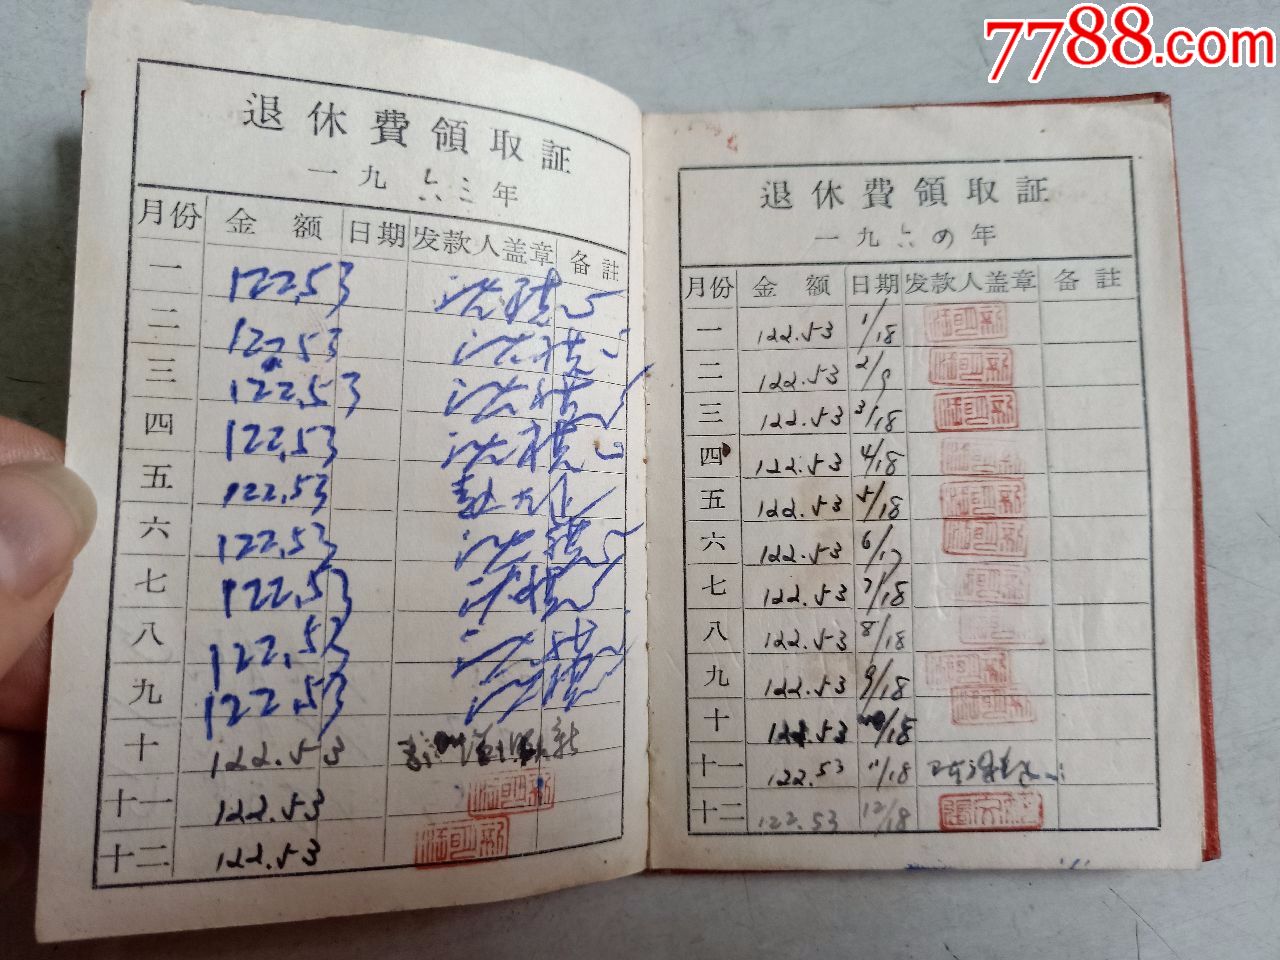 7788.com
退休费領取証
一九六三年
月份 金额 日期 发款人盖章 备註
一 122.53
二 122.53
三 122.53
四 122.53
五 122.53
六 122.53
七 122.53
八 122.53
九 122.53
十 122.53
十一 122.53
十二 122.53
退休费領取証
一九六四年
月份 金额 日期 发款人盖章 备註
一 122.53 1/18
二 122.53 2/9
三 122.53 3/18
四 122.53 4/18
五 122.53 5/18
六 122.53 6/17
七 122.53 7/18
八 122.53 8/18
九 122.53 9/18
十 122.53 10/18
十一 122.53 11/18
十二 122.53 12/18